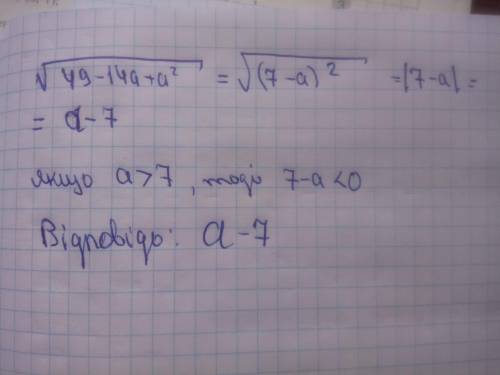 √(49-14a+a²) = √(7-a)² =|7-a|=
= a-7
якщо a>7, тоді 7-a<0
Відповідь: a-7